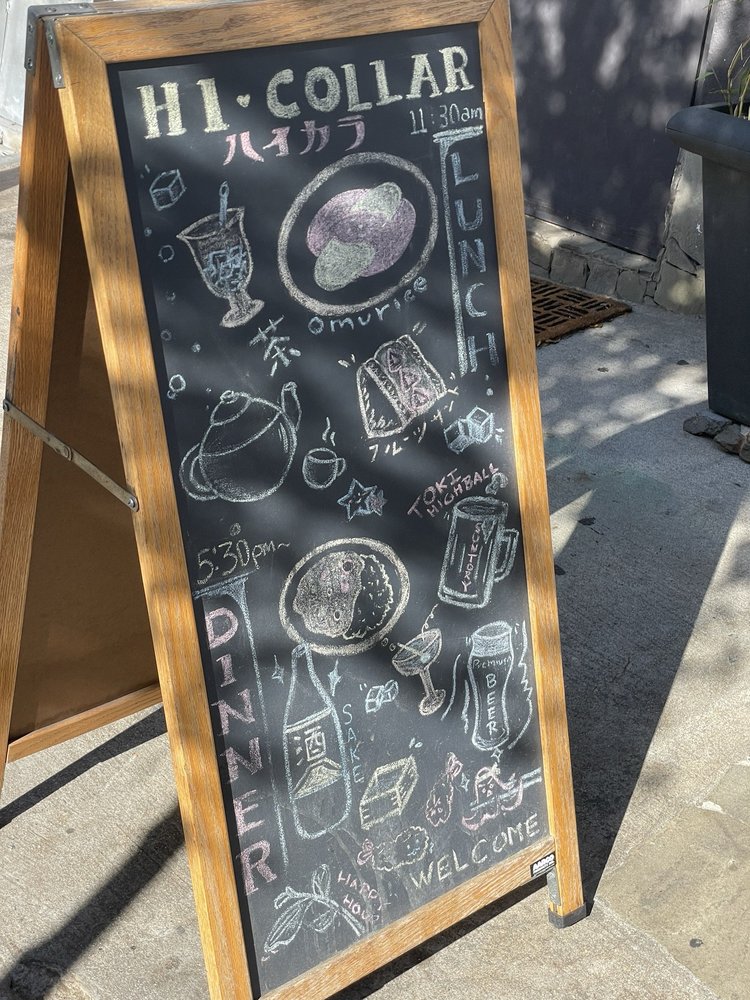 HI♥COLLAR
ハイカラ
11:30am
LUNCH
omurice
茶
フルーツサンド
TOKI
HIGHBALL
SUNTORY
5:30pm~
DINNER
Premium
BEER
酒
SAKE
WELCOME
HAPPY
HOUR